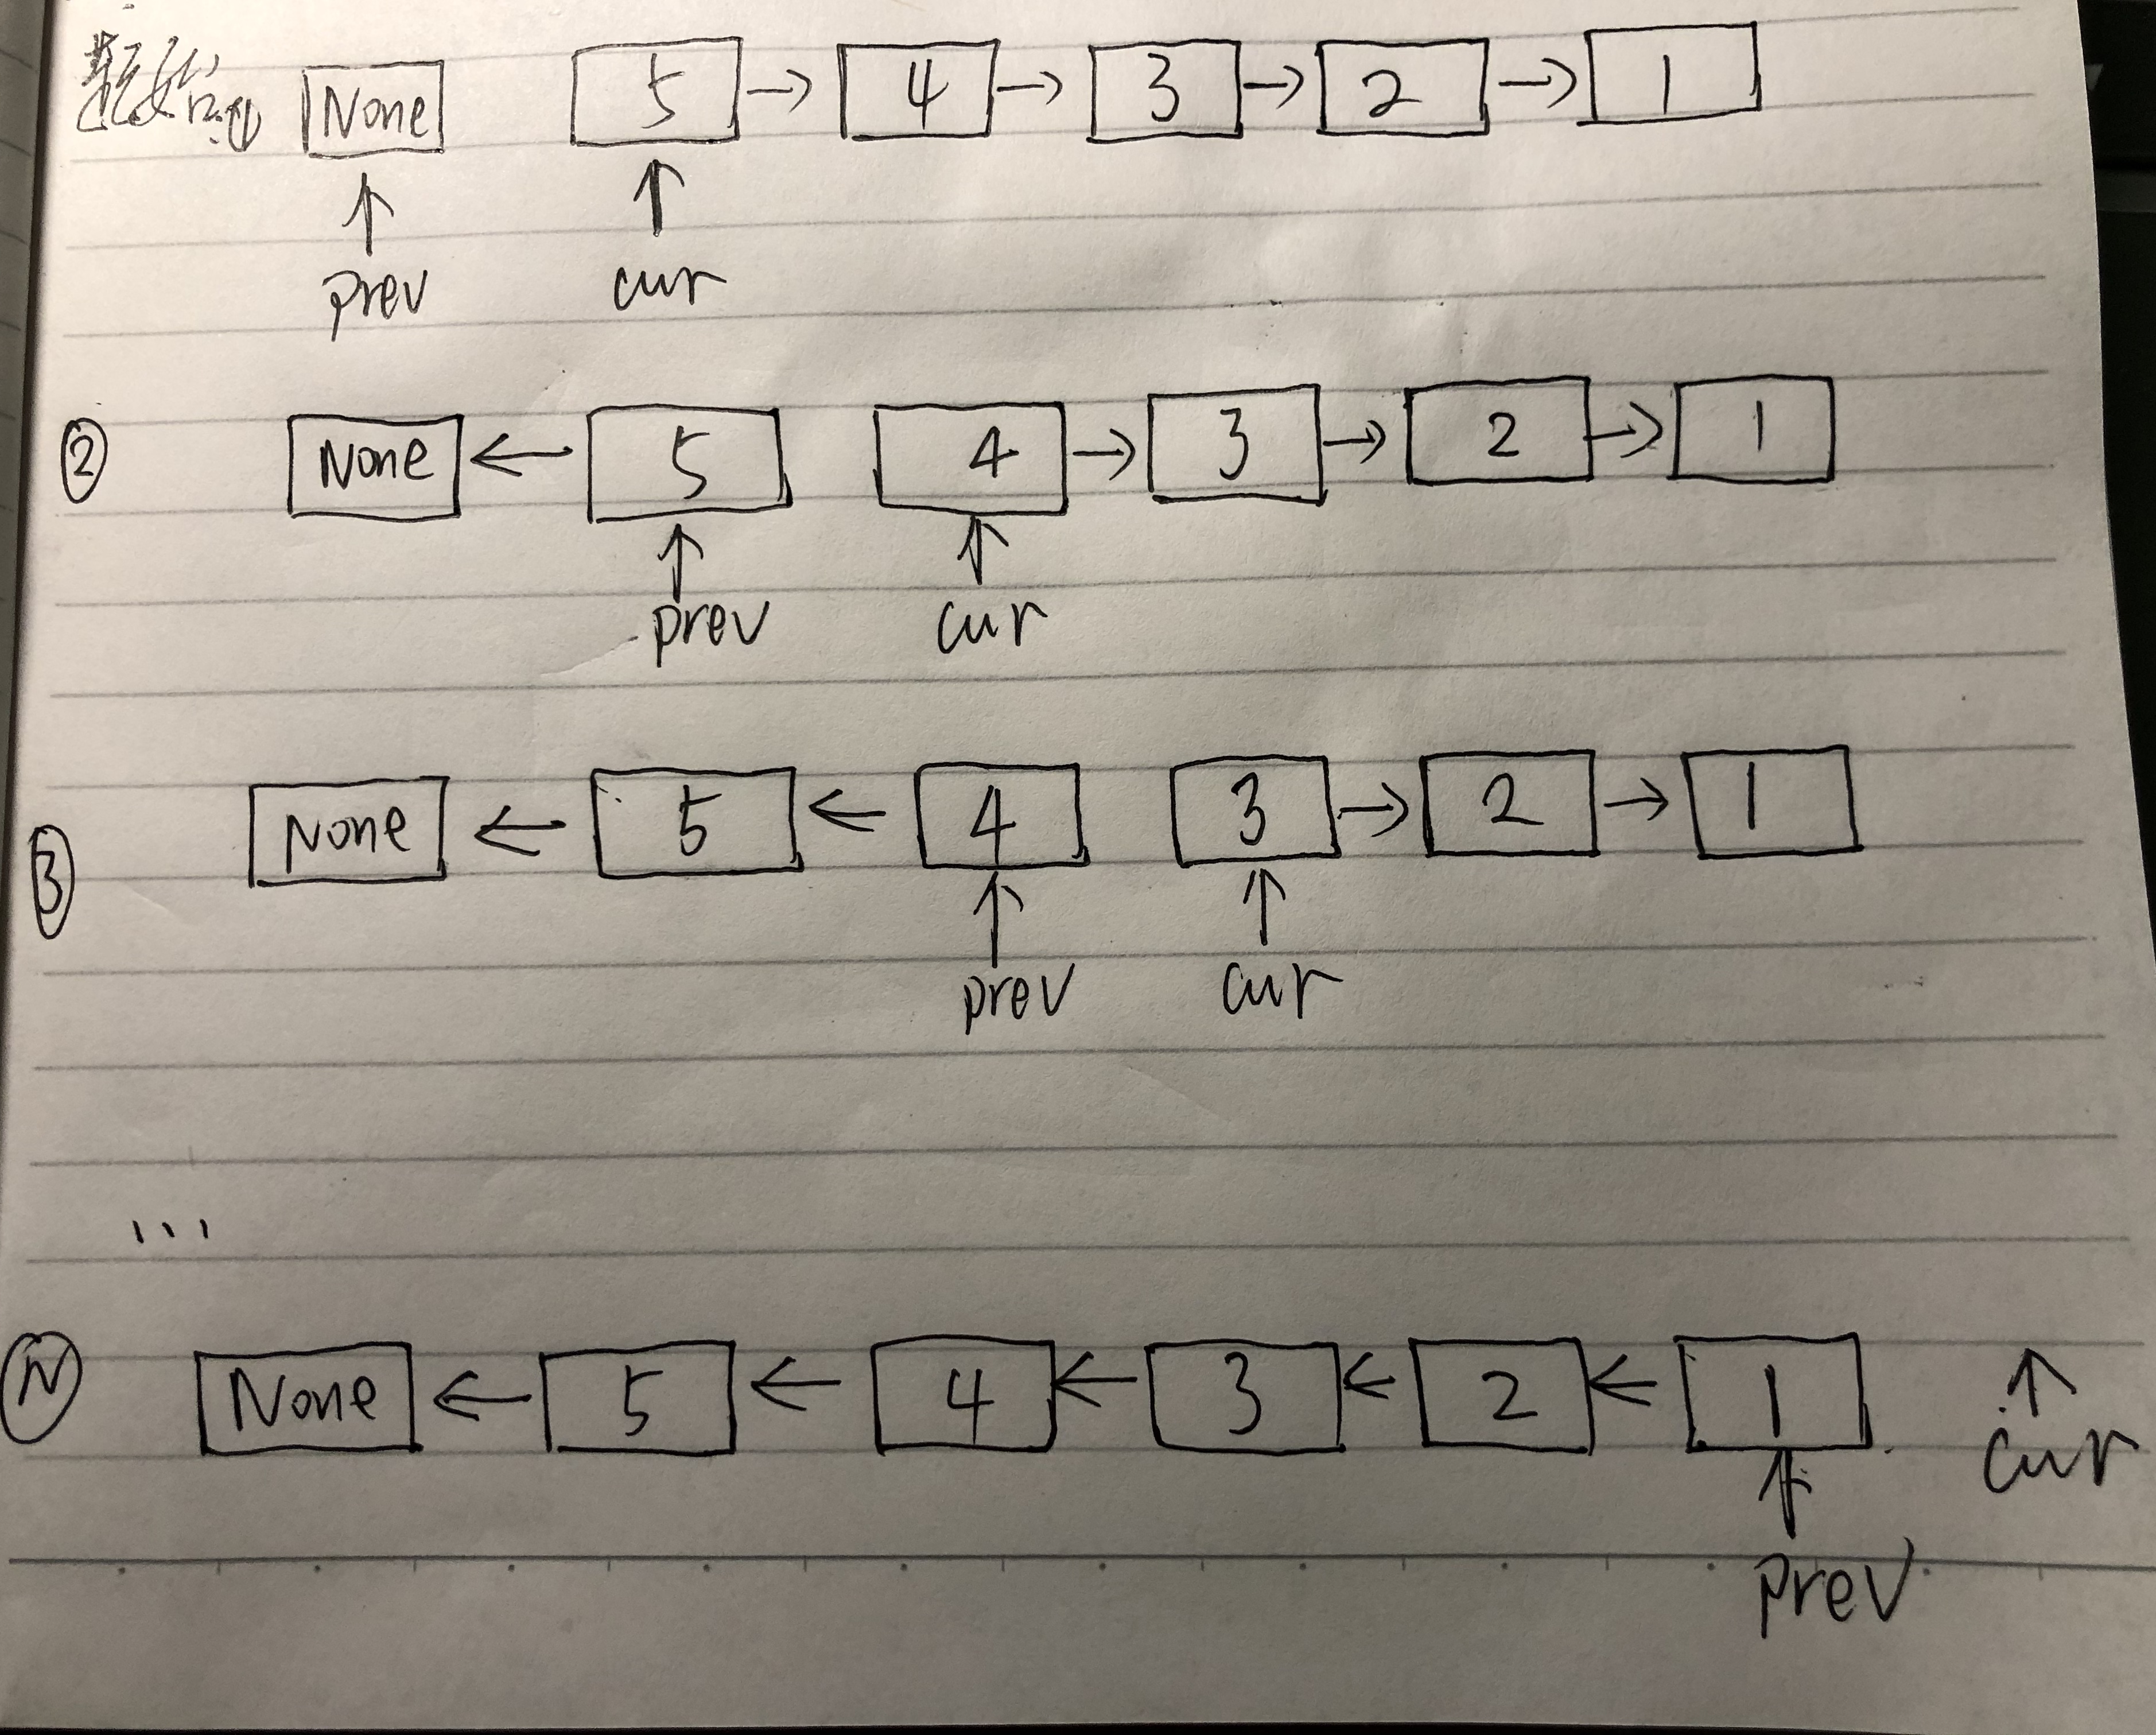 ① None 5 → 4 → 3 → 2 → 1
↑ ↑
prev cur
② None ← 5 4 → 3 → 2 → 1
↑ ↑
prev cur
③ None ← 5 ← 4 3 → 2 → 1
↑ ↑
prev cur
...
Ⓝ None ← 5 ← 4 ← 3 ← 2 ← 1 ↑
↑ cur
prev